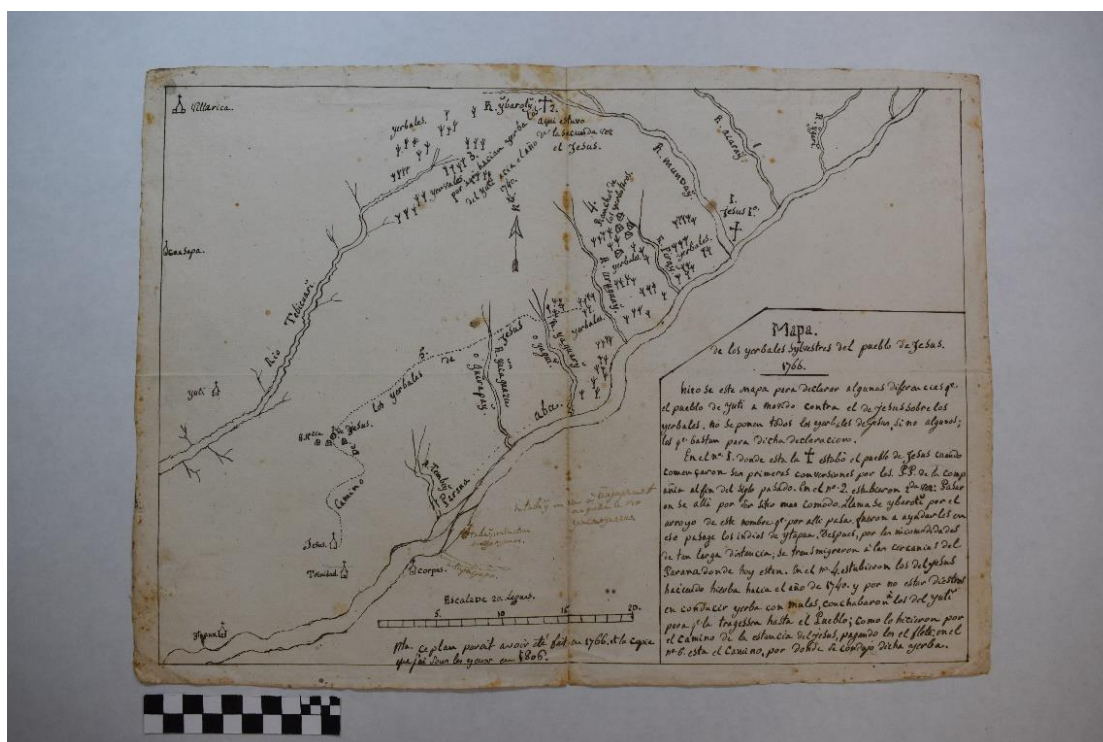 Villarica.
yerbales.
R. ybaroty
2.
aqui estuvo
la segunda vez
el Jesus.
3.
yerbales
por aqui hacian yerba los
del yuti acia el año
R. munday.
R. acaray
1.
Jesus 1o.
4.
Ranchos de
los yerbateros
yerbales
yerbales.
R. uruguay
yerbales.
Rio Tebicuari
yuti
6.
Camino De los yerbales de Jesus
Jesus.
o guirapay
R. yaguary
o yagui
R. Tembey
Parana
aba.
Jesus
Trinidad
Corpus.
ytapua
Escala de 20 leguas.
5. 10 15 20.
Nta. ce plan parait avoir été fait en 1766. et la Copie
que j'ai sous les yeux en 1806.
Mapa.
de los yerbales Sylvestres del pueblo de Jesus.
1766.
hizo se este mapa para declarar algunas diferencias qe.
el pueblo de yuti a movido contra el de Jesus sobre los
yerbales. no se ponen todos los yerbales de Jesus, si no algunos;
los qe. bastan para dicha declaracion.
En el no. 1. donde esta la ✝ estubo el pueblo de Jesus cuando
començaron sus primeras conversiones por los P.P. de la comp
añia al fin del siglo pasado. En el no. 2. estubieron 2da vez: Pasar
on se alli por ser sitio mas comodo. llama se ybaroti por el
arroyo de este nombre qe. por alli pasa. fueron a ayudarles en
ese pasage los indios de ytapua. Despues, por las incomodidades
de tan larga distancia, se transmigraron a las cercanias del
Parana donde hoy estan. En el no. 4. estubieron los del Jesus
haciendo hierba hacia el año de 1740. y por no estar diestros
en conducir yerba con mulas, conchabaron a los del yuti
para qe la tragessen hasta el Pueblo; como lo hicieron por
el Camino de la estancia del Jesus, pagando los el flete. en el
no 6. esta el Camino, por donde se condujo dicha yerba.